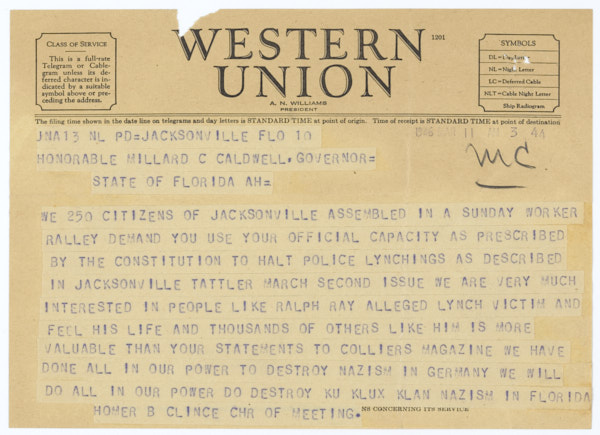 CLASS OF SERVICE
This is a full-rate
Telegram or Cable-
gram unless its de-
ferred character is in-
dicated by a suitable
symbol above or pre-
ceding the address.
WESTERN
UNION
1201
A. N. WILLIAMS
PRESIDENT
SYMBOLS
NL=Night Letter
LC=Deferred Cable
NLT=Cable Night Letter
Ship Radiogram
The filing time shown in the date line on telegrams and day letters is STANDARD TIME at point of origin. Time of receipt is STANDARD TIME at point of destination
JNA13 NL PD=JACKSONVILLE FLO 10
11 3 44
HONORABLE MILLARD C CALDWELL, GOVERNOR=
MC
STATE OF FLORIDA AH=
WE 250 CITIZENS OF JACKSONVILLE ASSEMBLED IN A SUNDAY WORKER
RALLEY DEMAND YOU USE YOUR OFFICIAL CAPACITY AS PRESCRIBED
BY THE CONSTITUTION TO HALT POLICE LYNCHINGS AS DESCRIBED
IN JACKSONVILLE TATTLER MARCH SECOND ISSUE WE ARE VERY MUCH
INTERESTED IN PEOPLE LIKE RALPH RAY ALLEGED LYNCH VICTIM AND
FEEL HIS LIFE AND THOUSANDS OF OTHERS LIKE HIM IS MORE
VALUABLE THAN YOUR STATEMENTS TO COLLIERS MAGAZINE WE HAVE
DONE ALL IN OUR POWER TO DESTROY NAZISM IN GERMANY WE WILL
DO ALL IN OUR POWER DO DESTROY KU KLUX KLAN NAZISM IN FLORIDA
HOMER B CLINCE CHR OF MEETING.
NS CONCERNING ITS SERVICE